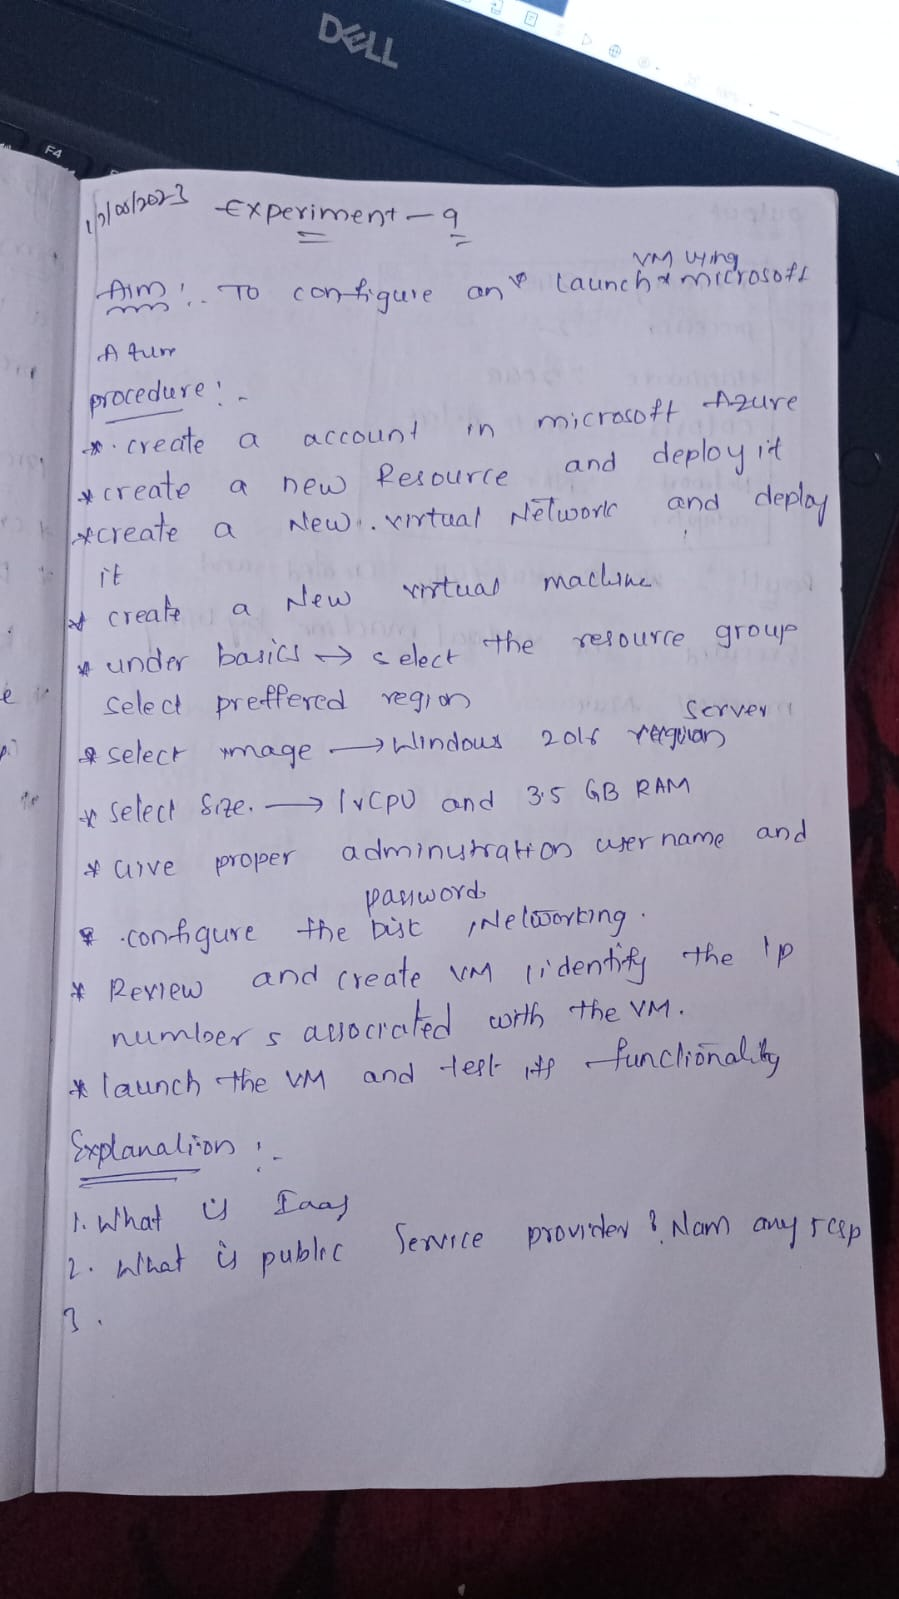 DELL
F4
Experiment - 9
VM using
Aim :- To configure and launch microsoft
Azure
procedure :-
* create a account in microsoft Azure
* create a new Resource and deploy it
* create a New virtual Network and deploy
it
* create a New virtual machine
* under basics → select the resource group
select preffered region
server
* select image → Windows 2016
* select size. → 1vCPU and 3.5 GB RAM
* Give proper adminustration username and
password
* configure the Disk , Networking.
* Review and create VM (identify the Ip
numbers associated with the VM.
* launch the VM and test its functionality
Explanation :-
1. What is Iaas
2. What is public Service provider ? Nam any
3.